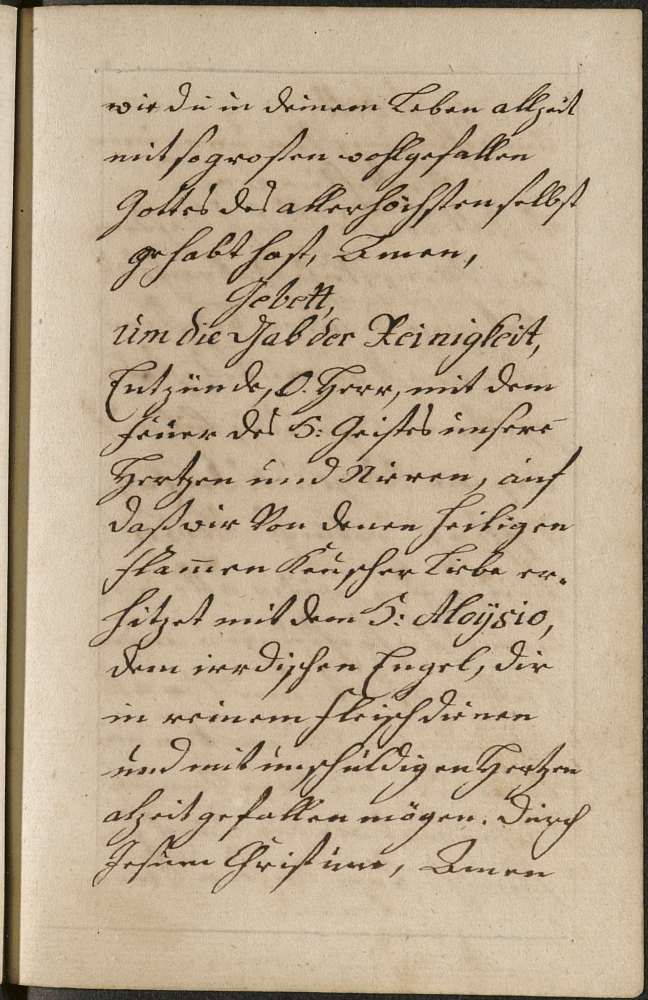 wie du in deinem Leben allzeit
mit so grosen wohlgefallen
Gottes des allerhöchsten selbst
gehabt hast, Amen,
Gebett,
um die Gab der Reinigkeit,
Entzünde, O. Herr, mit dem
feüer des H: Geistes unsere
Hertzen und Nieren, auf
daß wir von denen heiligen
flam̄en keuscher Liebe er-
hitzet mit dem H: Aloÿsio,
dem irrdischen Engel, dir
in reinem fleisch dienen
und mit unschuldigen Hertzen
alzeit gefallen mögen. Durch
Jesum Christum, Amen